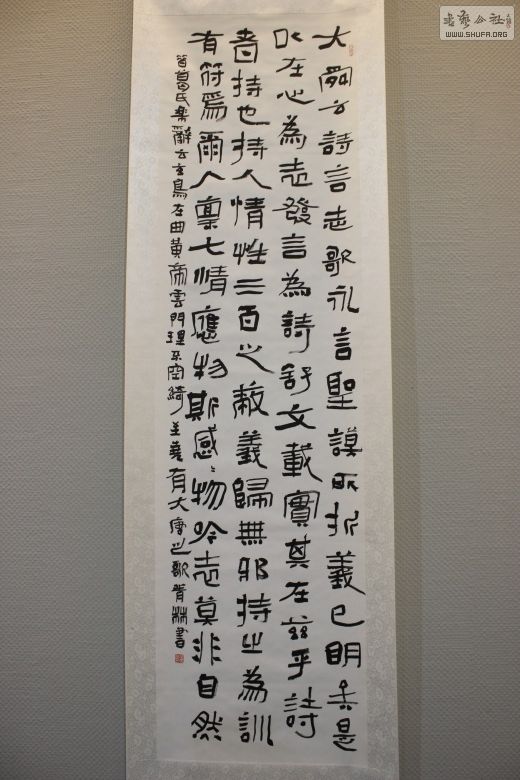 書藝公社
WWW.SHUFA.ORG
大舜云詩言志歌永言聖謨所析義已明矣是
以在心為志發言為詩舒文載實其在茲乎詩
者持也持人情性三百之蔽義歸無邪持之為訓
有符焉爾人稟七情應物斯感〻物吟志莫非自然
昔葛氏樂辭云玄鳥在曲黃帝雲門理不空綺至堯有大唐之歌 書